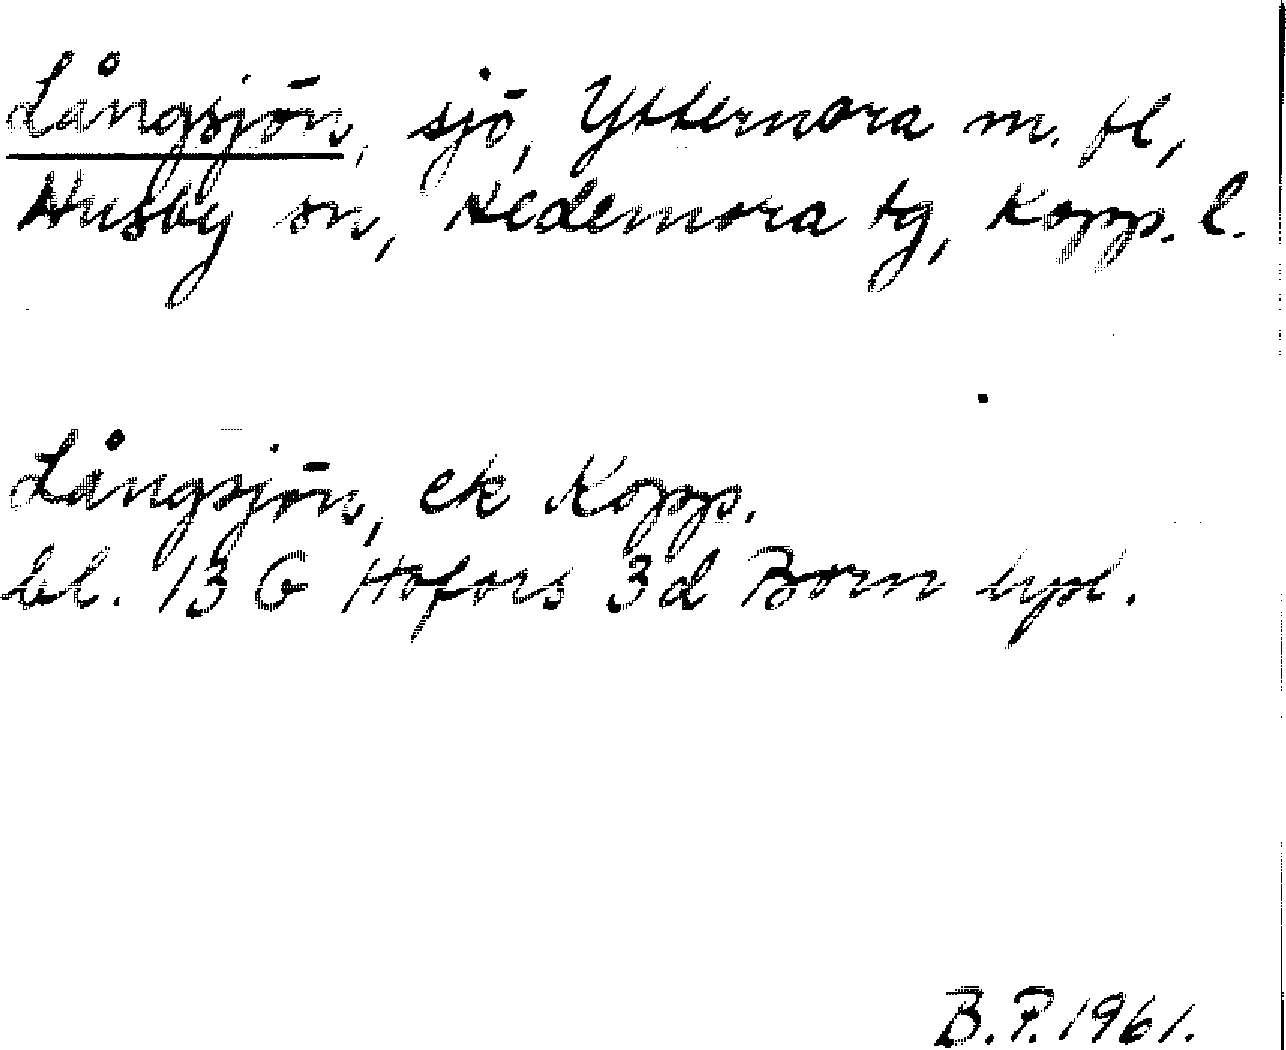 Långsjön, sjö, Ytternora m. fl,
Husby sn, Hedemora tg, Kopp. l.
Långsjön, ek Kopp.
bl. 13 G Hofors 3d Born
B.P. 1961.